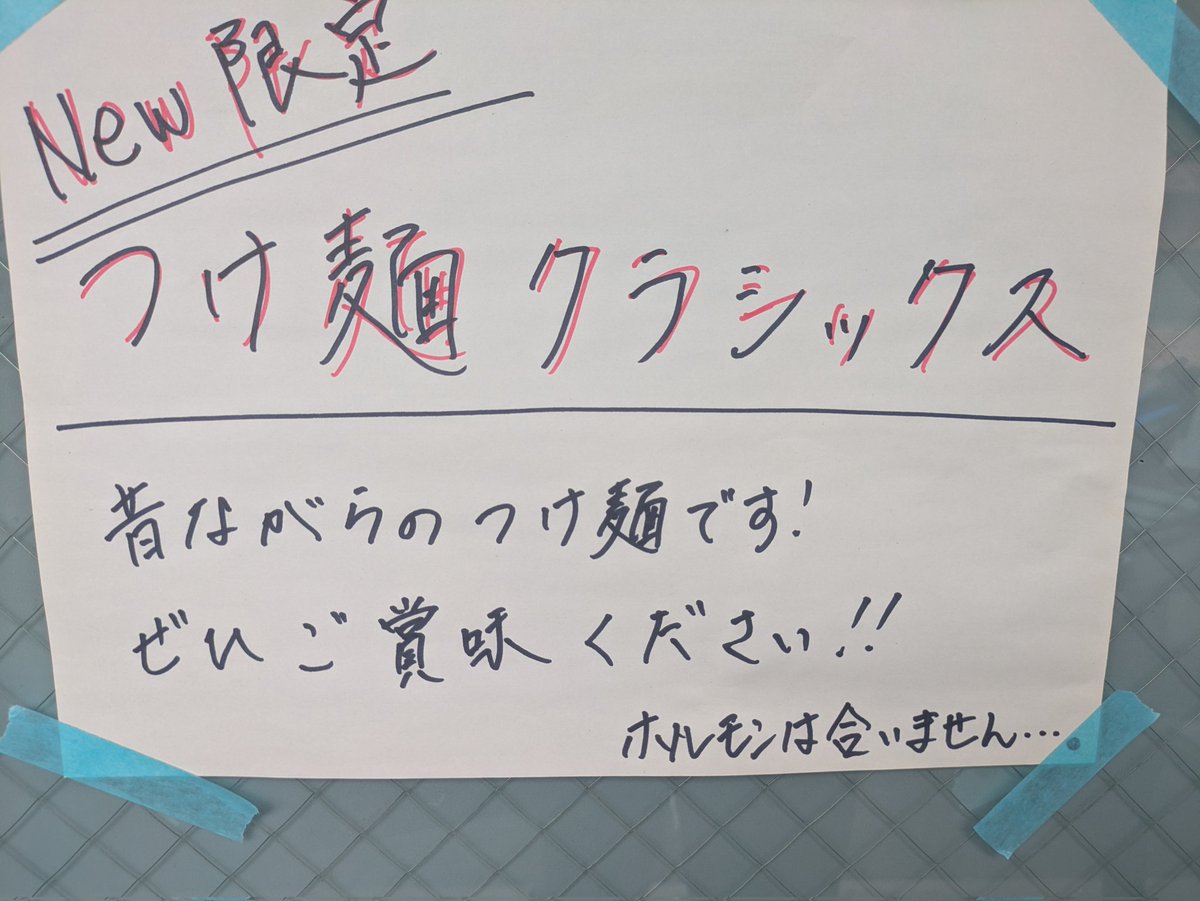 New 限定
つけ麺 クラシックス
昔ながらのつけ麺です!
ぜひご賞味ください!!
ホルモンは合いません…